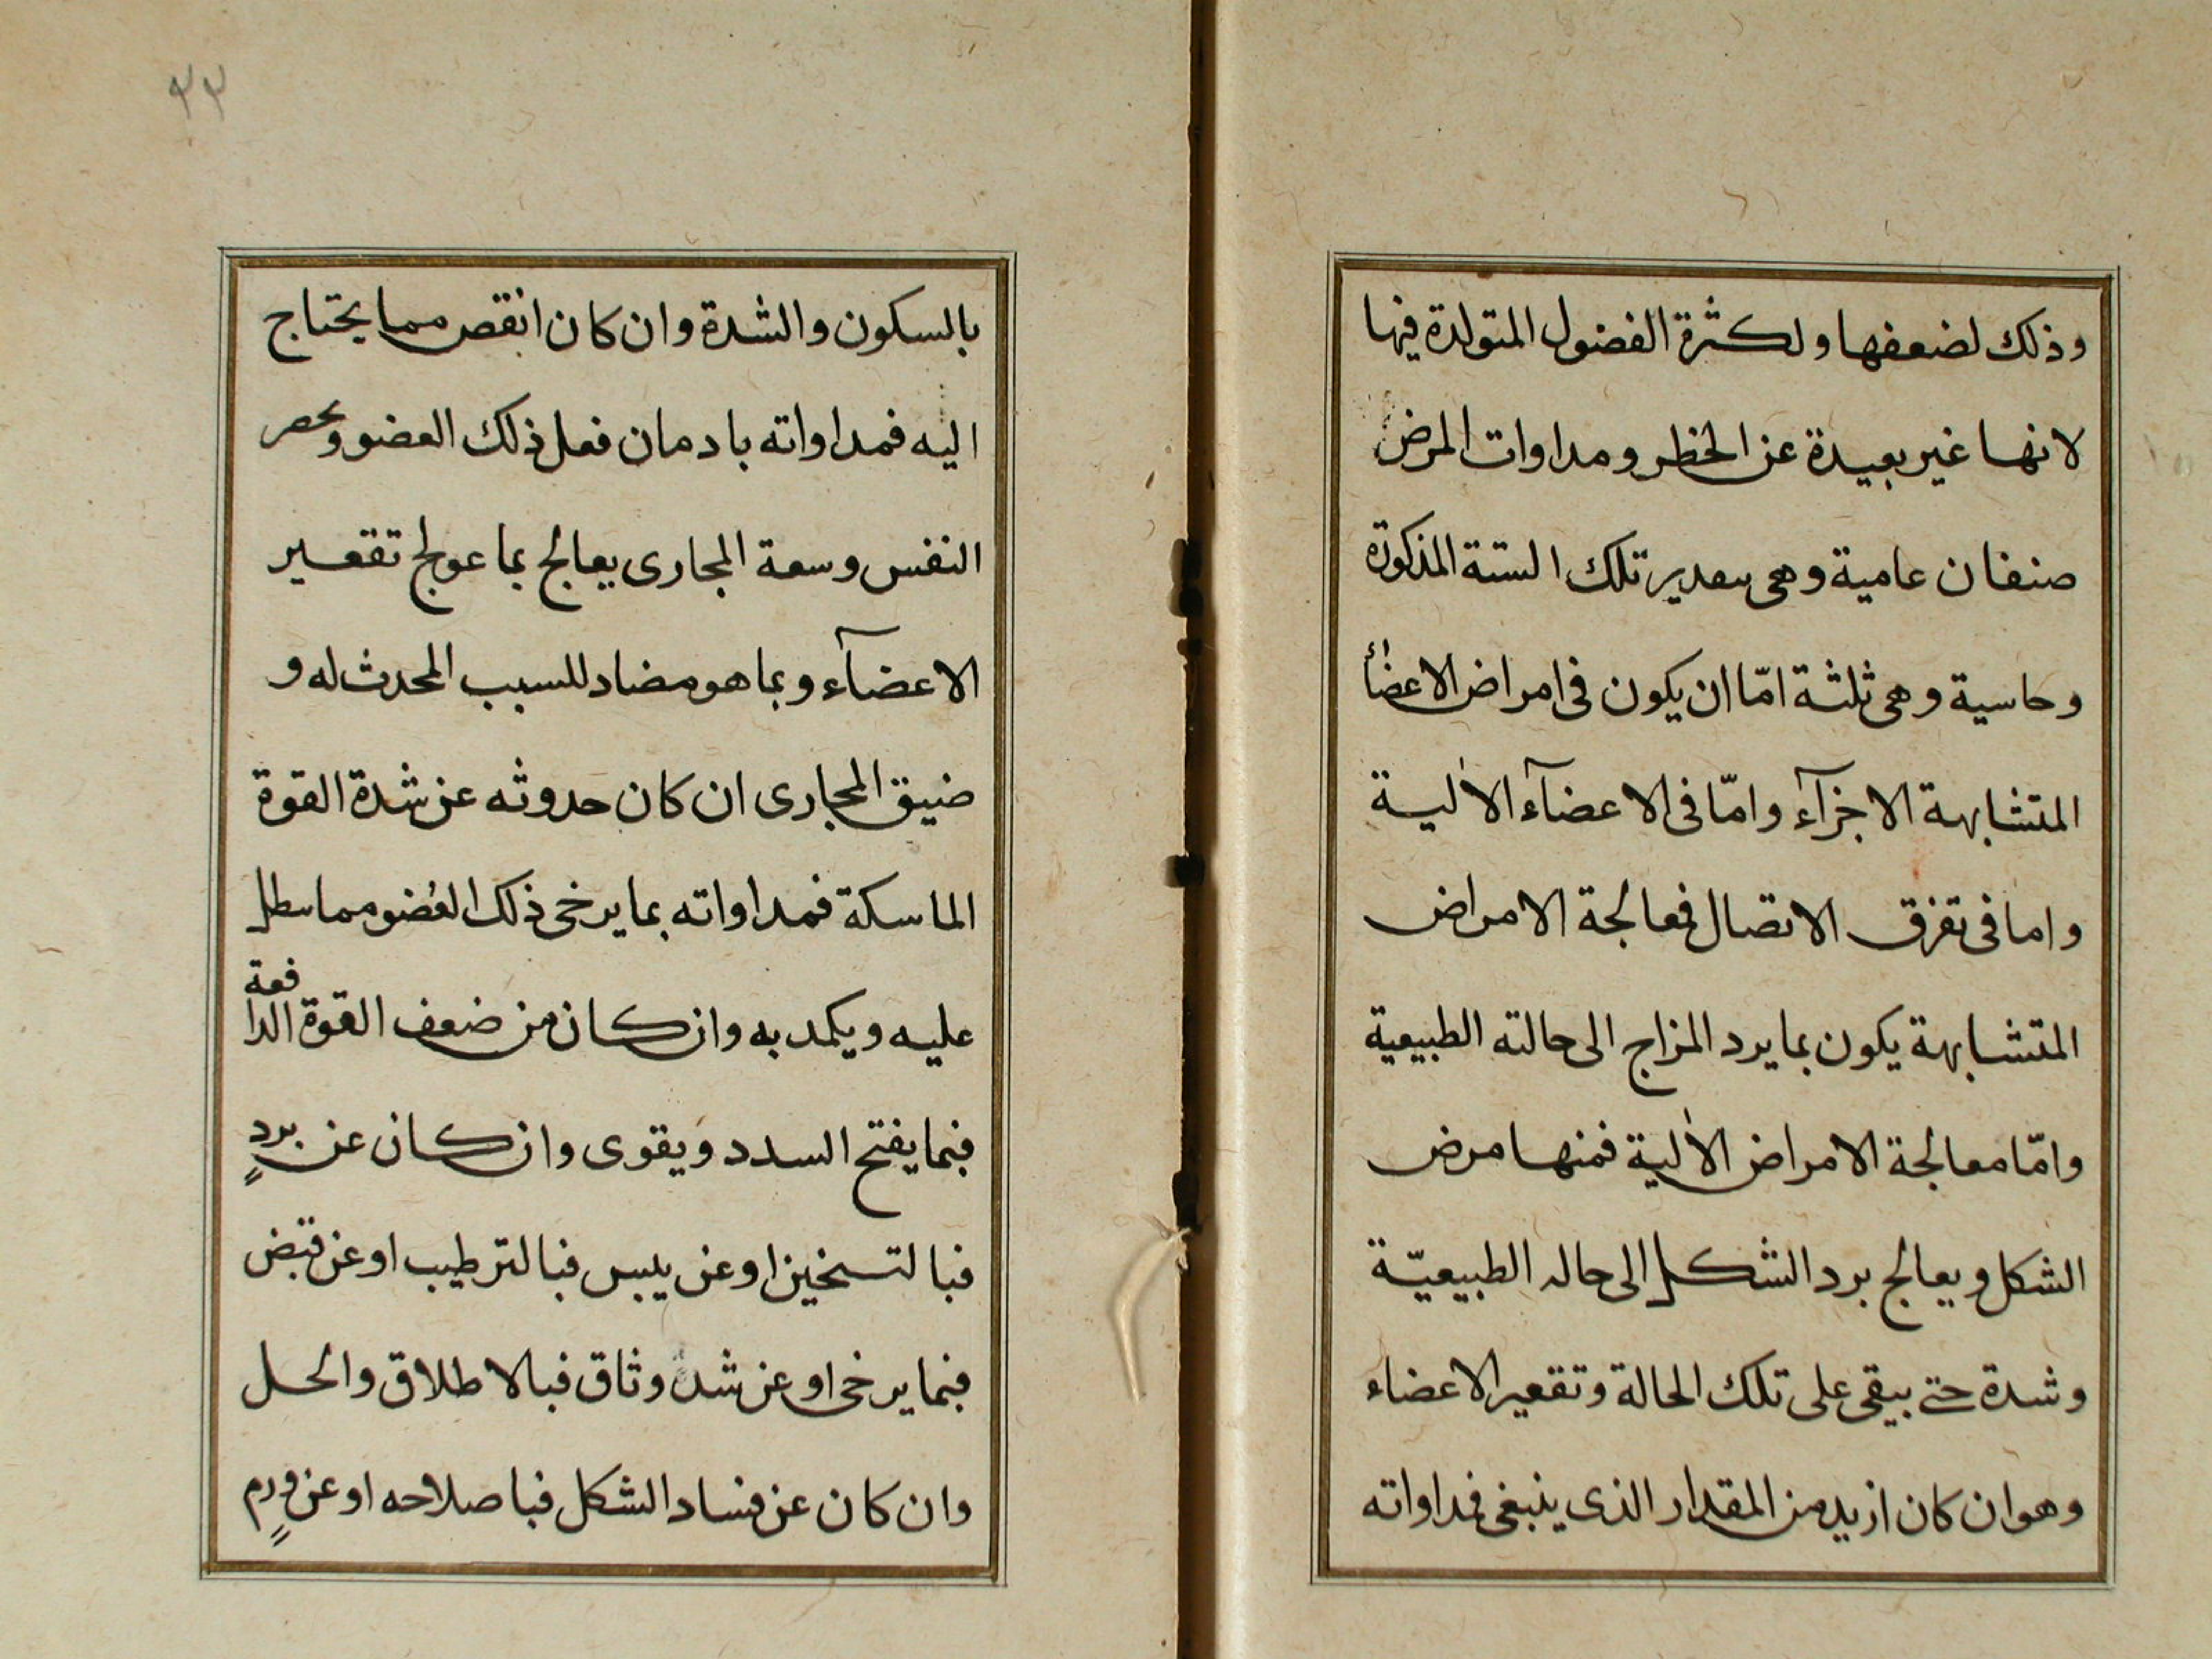 وذلك لضعفها ولكثرة الفضول المتولدة فيها
لانها غير بعيدة عن الخطر ومداوات المرض
صنفان عامية وهى تلك الستة المذكورة
وحاسية وهى ثلثة امّا ان يكون فى امراض الاعضأ
المتشابهة الاجزآء وامّا فى الاعضآء الالية
واما فى تفرق الاتصال فمعالجة الامراض
المتشابهة يكون بما يرد المزاج الى حالته الطبيعية
وامّا معالجة الامراض الالية فمنها مرض
الشكل ويعالج برد الشكل الى حاله الطبيعيّة
وشدة حتى يبقى على تلك الحالة وتقعير الاعضاء
وهو ان كان ازيد من المقدار الذى ينبغى فمداواته
٢٣
بالسكون والشدة وان كان انقص مما يحتاج
اليه فمداواته بادمان فعل ذلك العضو
النفس وسعة المجارى يعالج بما عولج تقعير
الاعضآء وبما هو مضاد للسبب المحدث له و
ضيق المجارى ان كان حدوثه عن شدة القوة
الماسكة فمداواته بما يرخى ذلك العضو مما
عليه ويكمد به وان كان من ضعف القوة الدافعة
فبما يفتح السدد ويقوى وان كان عن بردٍ
فبالتسخين او عن يبس فبالترطيب او عن قبض
فبما يرخى او عن شد وثاق فبالاطلاق والحل
وان كان عن فساد الشكل فباصلاحه او عن ورمٍ